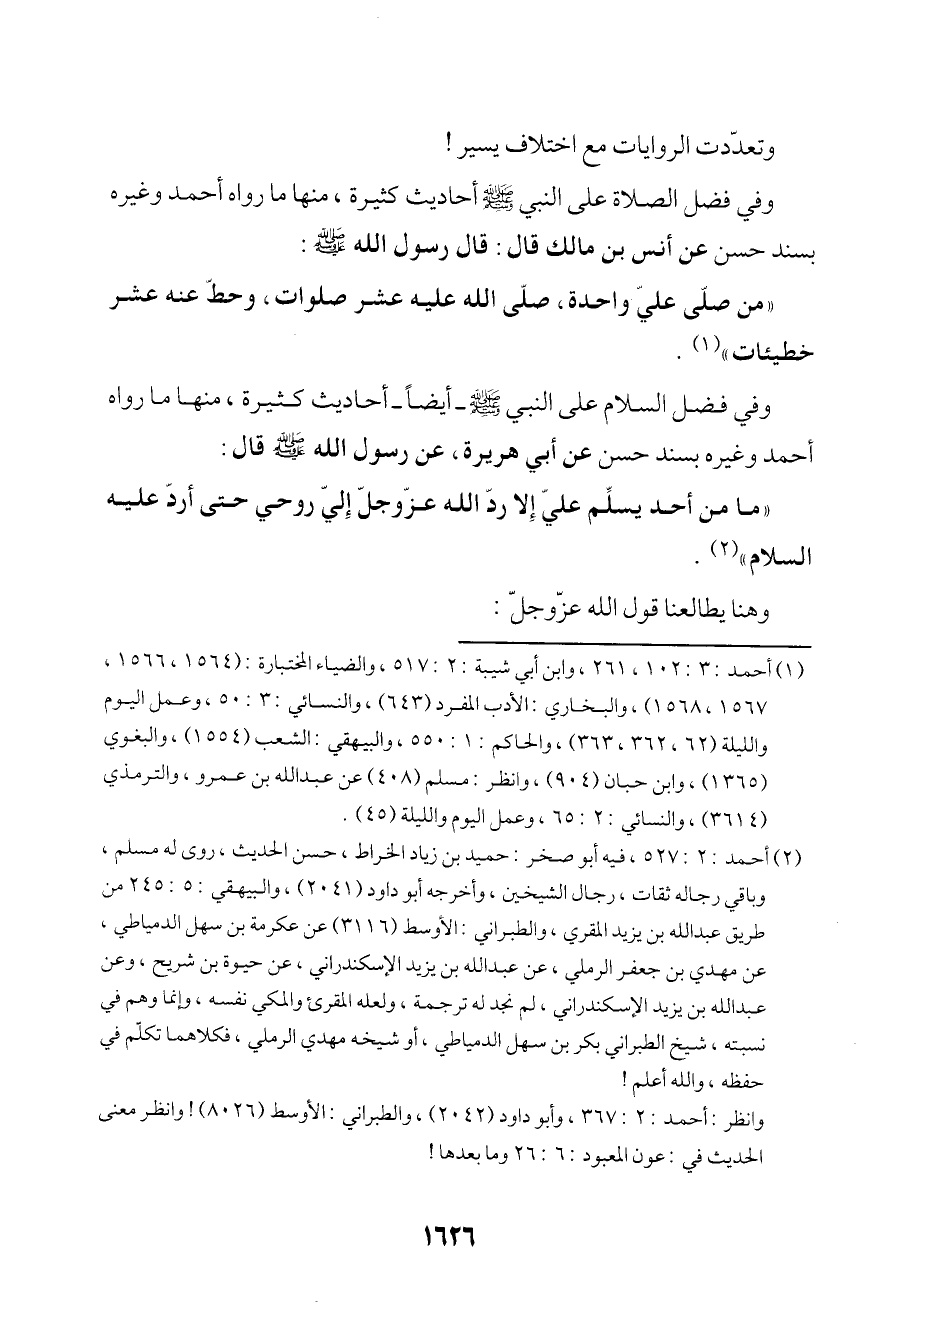 وتعدّدت الروايات مع اختلاف يسير !
وفي فضل الصلاة على النبي ﷺ أحاديث كثيرة ، منها ما رواه أحمد وغيره
بسند حسن عن أنس بن مالك قال : قال رسول الله ﷺ :
«من صلّى عليّ واحدة ، صلّى الله عليه عشر صلوات ، وحطّ عنه عشر
خطيئات»(١) .
وفي فضل السلام على النبي ﷺ ـ أيضاً ـ أحاديث كثيرة ، منها ما رواه
أحمد وغيره بسند حسن عن أبي هريرة ، عن رسول الله ﷺ قال :
«ما من أحد يسلّم عليّ إلا ردّ الله عزّوجلّ إليّ روحي حتى أردّ عليه
السلام»(٢) .
وهنا يطالعنا قول الله عزّوجلّ :
(١) أحمد : ٣ : ١٠٢ ، ٢٦١ ، وابن أبي شيبة : ٢ : ٥١٧ ، والضياء المختارة : (١٥٦٤ ، ١٥٦٦ ،
١٥٦٧ ، ١٥٦٨) ، والبخاري : الأدب المفرد (٦٤٣) ، والنسائي : ٣ : ٥٠ ، وعمل اليوم
والليلة (٦٢ ، ٣٦٢ ، ٣٦٣) ، والحاكم : ١ : ٥٥٠ ، والبيهقي : الشعب (١٥٥٤) ، والبغوي
(١٣٦٥) ، وابن حبان (٩٠٤) ، وانظر : مسلم (٤٠٨) عن عبدالله بن عمرو ، والترمذي
(٣٦١٤) ، والنسائي : ٢ : ٦٥ ، وعمل اليوم والليلة (٤٥) .
(٢) أحمد : ٢ : ٥٢٧ ، فيه أبو صخر : حميد بن زياد الخراط ، حسن الحديث ، روى له مسلم ،
وباقي رجاله ثقات ، رجال الشيخين ، وأخرجه أبو داود (٢٠٤١) ، والبيهقي : ٥ : ٢٤٥ من
طريق عبدالله بن يزيد المقري ، والطبراني : الأوسط (٣١١٦) عن عكرمة بن سهل الدمياطي ،
عن مهدي بن جعفر الرملي ، عن عبدالله بن يزيد الإسكندراني ، عن حيوة بن شريح ، وعن
عبدالله بن يزيد الإسكندراني ، لم نجد له ترجمة ، ولعله المقرئ والمكي نفسه ، وإنما وهم في
نسبته ، شيخ الطبراني بكر بن سهل الدمياطي ، أو شيخه مهدي الرملي ، فكلاهما تكلّم في
حفظه ، والله أعلم !
وانظر : أحمد : ٢ : ٣٦٧ ، وأبو داود (٢٠٤٢) ، والطبراني : الأوسط (٨٠٢٦) ! وانظر معنى
الحديث في : عون المعبود : ٦ : ٢٦ وما بعدها !
١٦٢٦